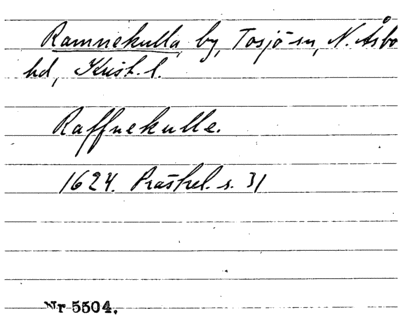 Ramnekulla, by, Tosjö sn, N. Åsbo
hd, Krist. l.
Raffnekulle.
1624. Prästrel. s. 31
Nr 5504.